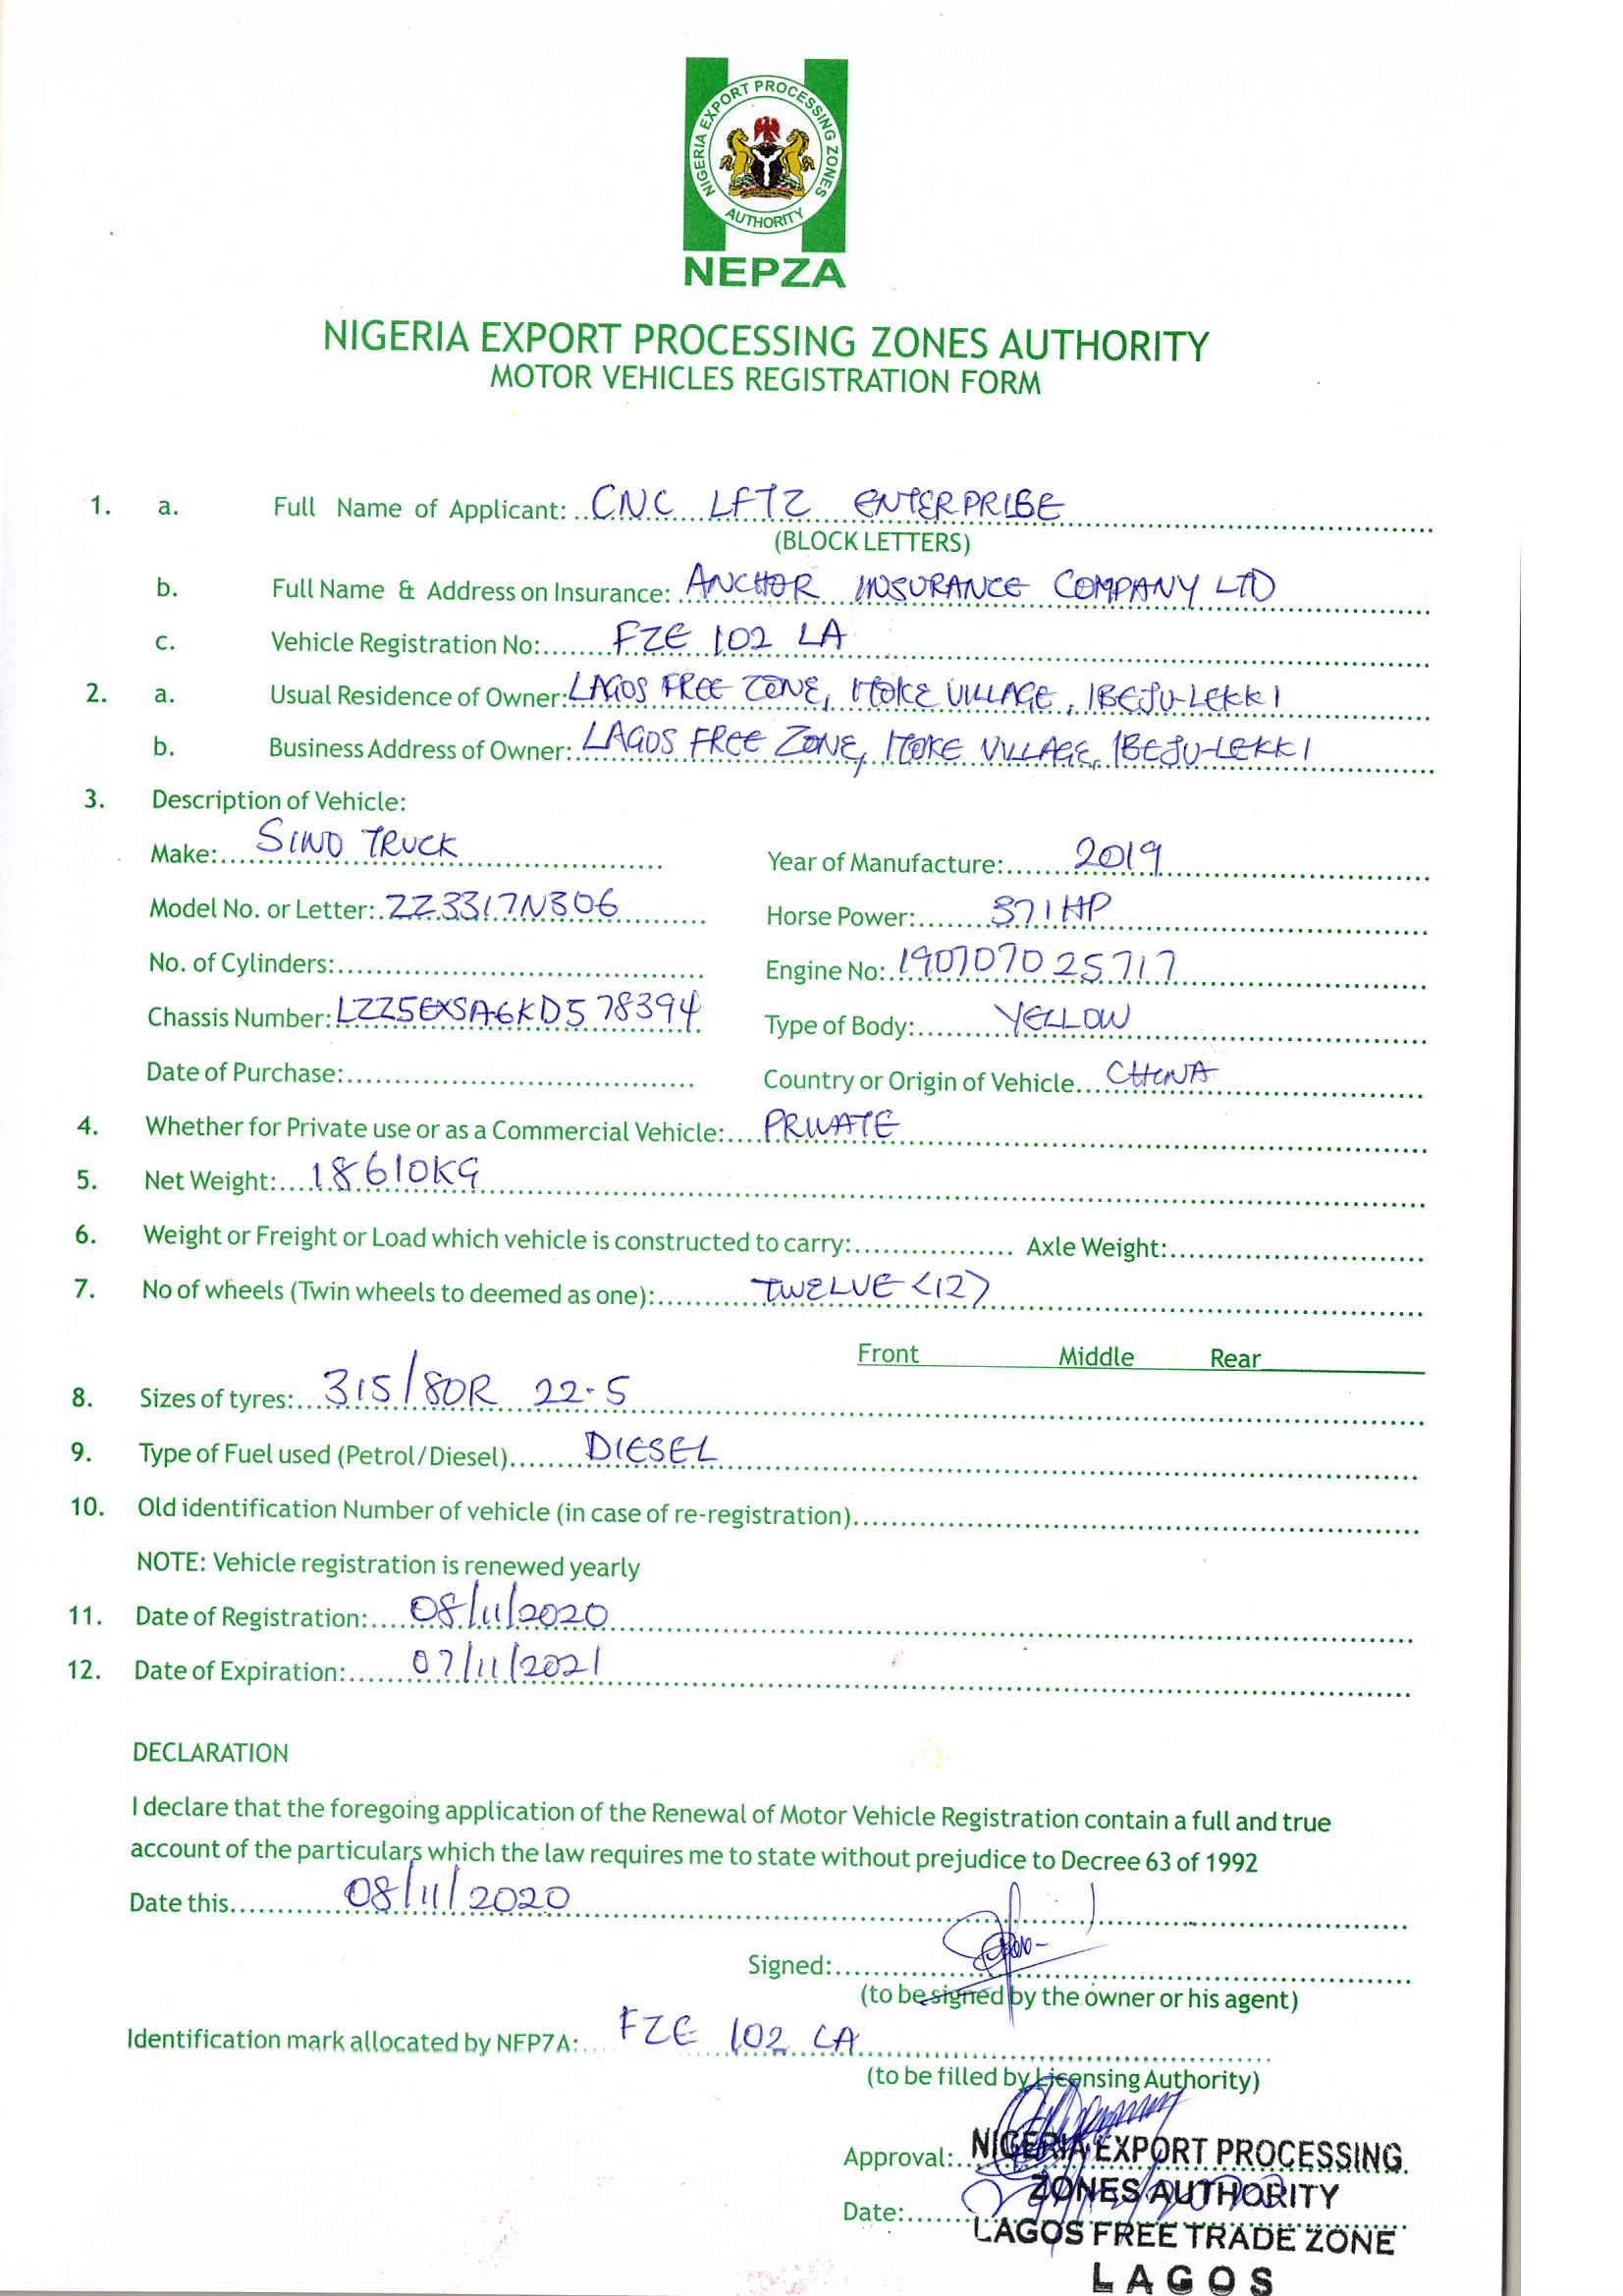 NIGERIA EXPORT PROCESSING ZONES
AUTHORITY
NEPZA
NIGERIA EXPORT PROCESSING ZONES AUTHORITY
MOTOR VEHICLES REGISTRATION FORM
1. a. Full Name of Applicant: CNC LFTZ ENTERPRISE
(BLOCK LETTERS)
b. Full Name & Address on Insurance: ANCHOR INSURANCE COMPANY LTD
c. Vehicle Registration No: FZE 102 LA
2. a. Usual Residence of Owner: LAGOS FREE ZONE, ITOKE VILLAGE, IBEJU-LEKKI
b. Business Address of Owner: LAGOS FREE ZONE, ITOKE VILLAGE, IBEJU-LEKKI
3. Description of Vehicle:
Make: SINO TRUCK Year of Manufacture: 2019
Model No. or Letter: ZZ3317N306 Horse Power: 371HP
No. of Cylinders: Engine No: 190707025717
Chassis Number: LZZ5EXSA6KD578394 Type of Body: YELLOW
Date of Purchase: Country or Origin of Vehicle CHINA
4. Whether for Private use or as a Commercial Vehicle: PRIVATE
5. Net Weight: 18610KG
6. Weight or Freight or Load which vehicle is constructed to carry: Axle Weight:
7. No of wheels (Twin wheels to deemed as one): TWELVE (12)
Front Middle Rear
8. Sizes of tyres: 315/80R 22.5
9. Type of Fuel used (Petrol/Diesel) DIESEL
10. Old identification Number of vehicle (in case of re-registration)
NOTE: Vehicle registration is renewed yearly
11. Date of Registration: 08/11/2020
12. Date of Expiration: 07/11/2021
DECLARATION
I declare that the foregoing application of the Renewal of Motor Vehicle Registration contain a full and true
account of the particulars which the law requires me to state without prejudice to Decree 63 of 1992
Date this 08/11/2020
Signed:
(to be signed by the owner or his agent)
Identification mark allocated by NEPZA: FZE 102 LA
(to be filled by Licensing Authority)
Approval: NIGERIA EXPORT PROCESSING
ZONES AUTHORITY
Date:
LAGOS FREE TRADE ZONE
LAGOS